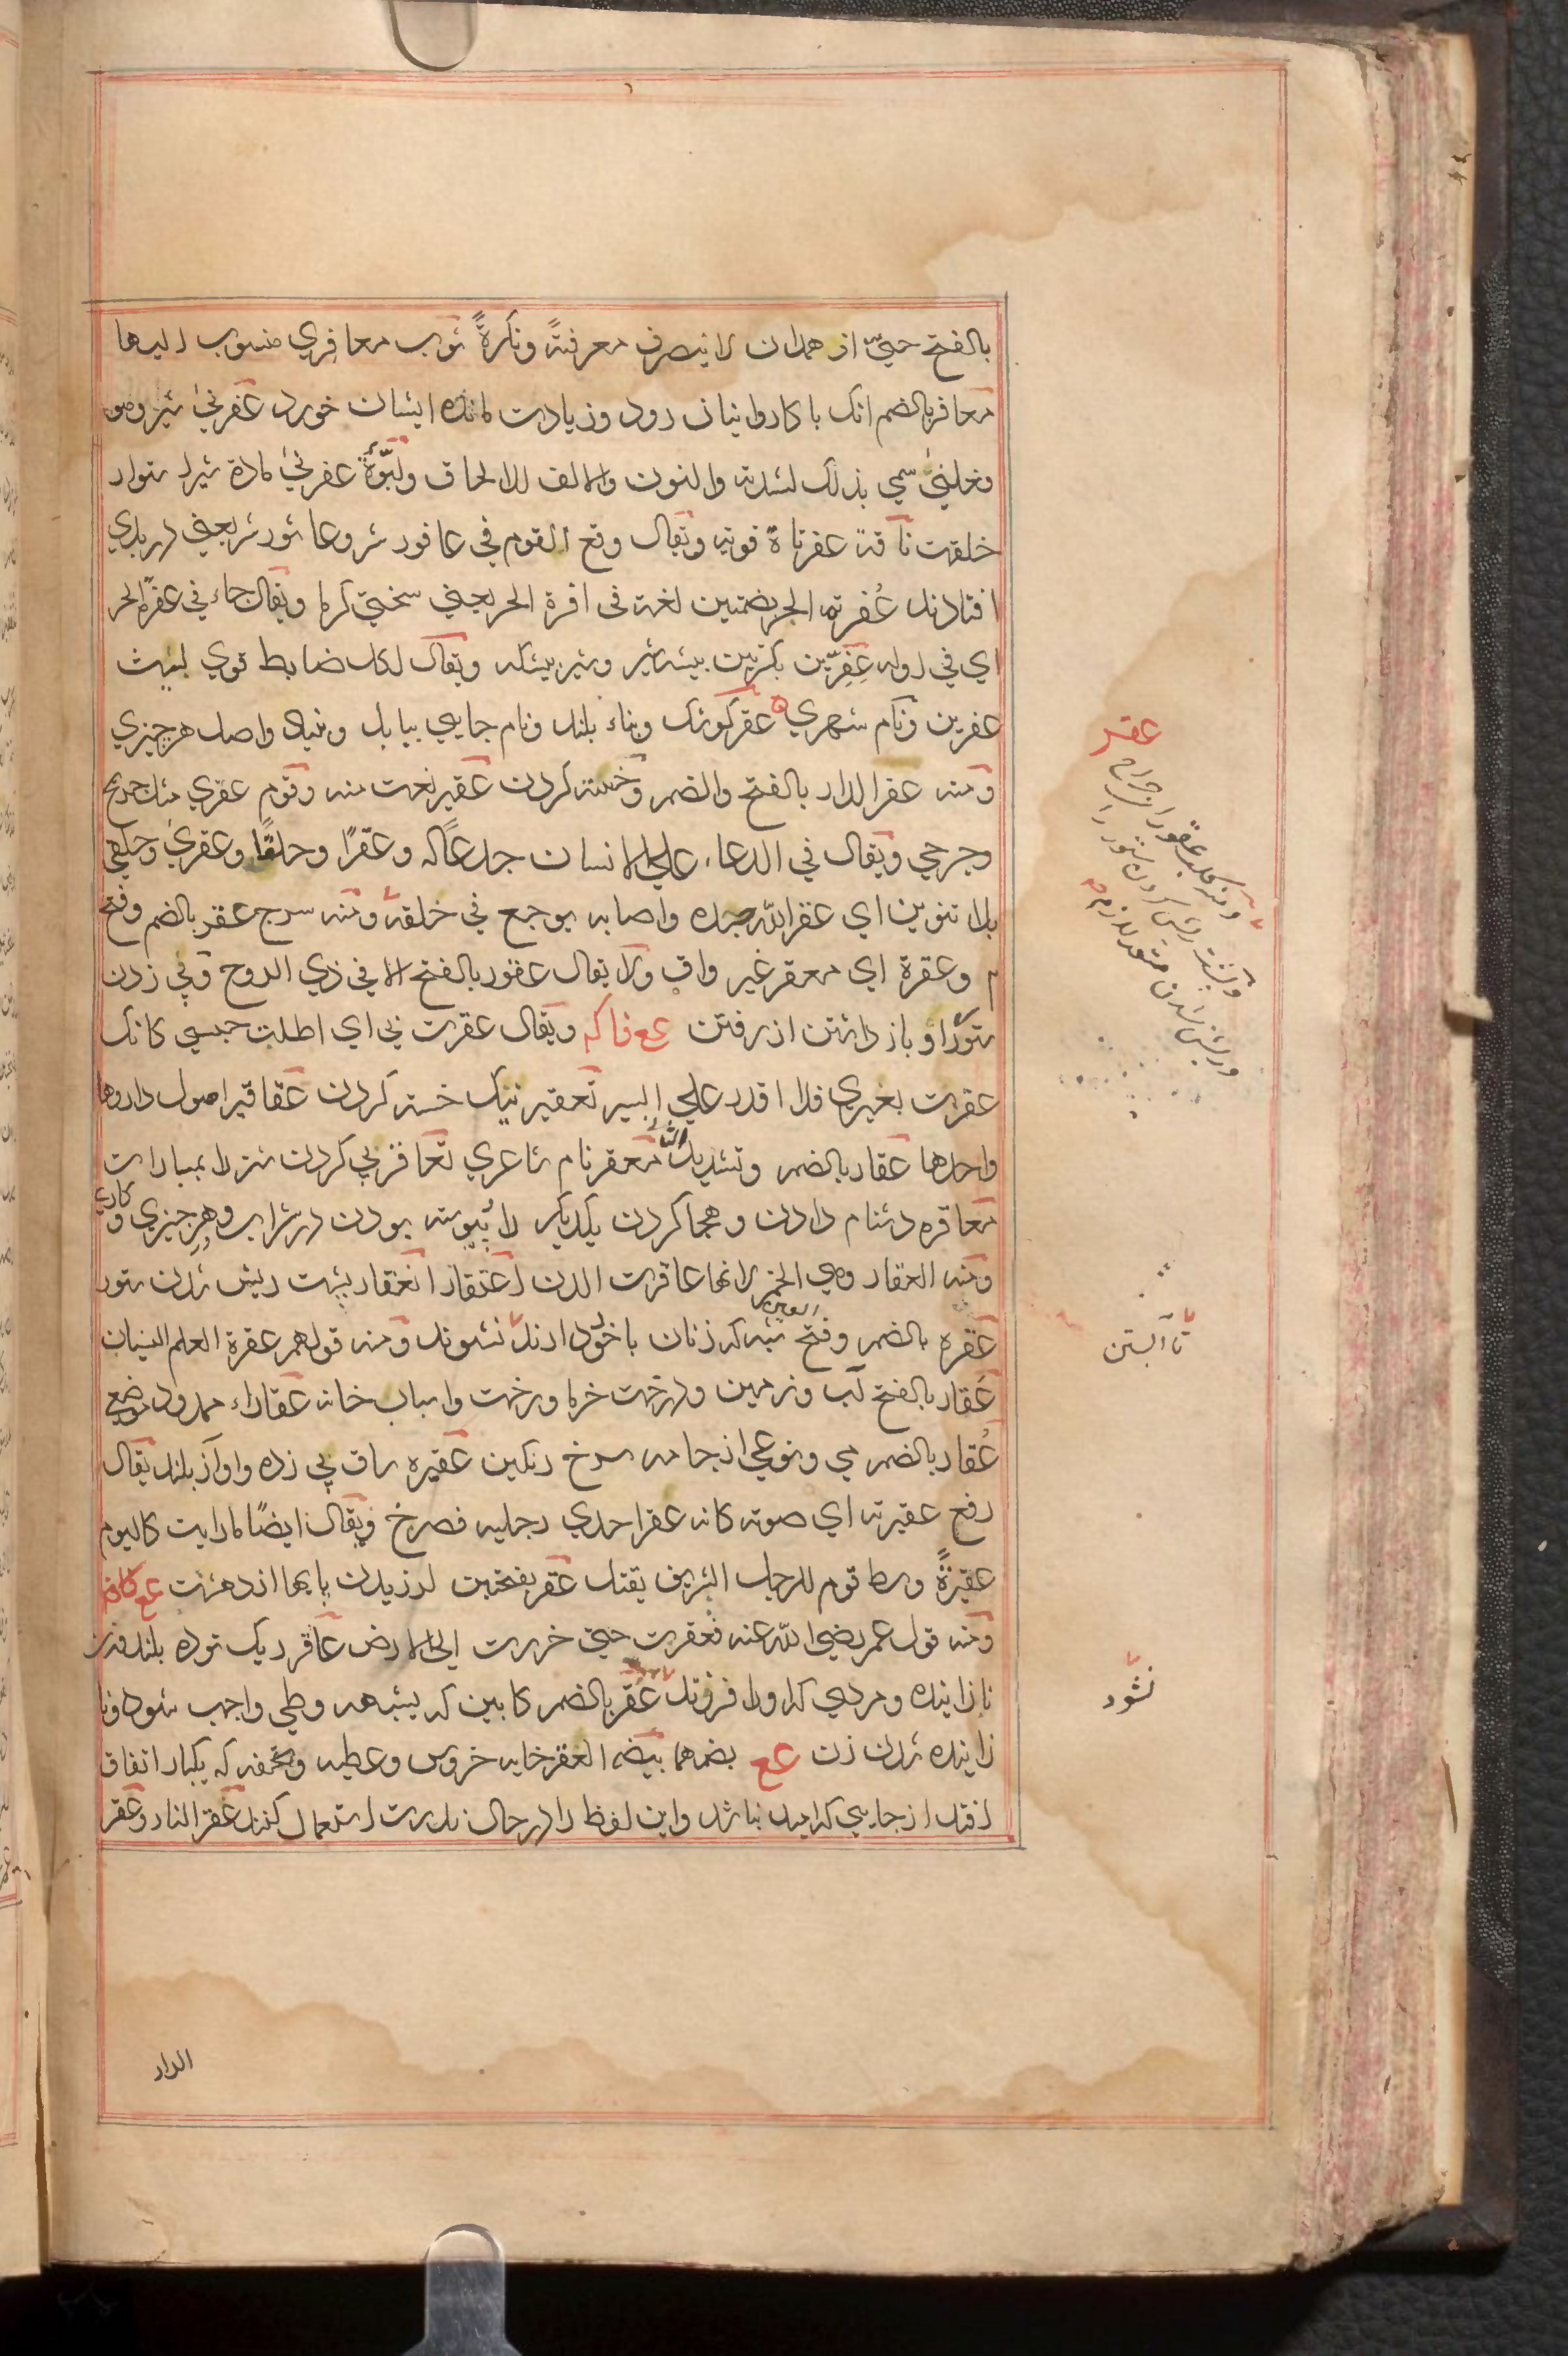 بالفتح حیّ از همدان لا ینصرف معرفةً ونكرةً ثوب معافري منسوب الیها
معافر بالضم انك با كاروانیان رود و زیادت مانده ایشان خورد عفرنی شیر وهو
فعلنی سمي بذلك لشدته والنون والالف للالحاق ولبوّة عفرنی ماده شیر استوار
خلقت ناقة عفرناة قویة ویقال وقع القوم في عافور شر وعاثور شر یعنی در بدي
افتادند عُفرة الحر بضمتین لغة فی افرة الحر یعنی سختی گرما ویقال جاء في عفرّة الحر
اي في اوله عِفِرّین بكسرتین بیشه شیر وشیر بیشه ویقال لكل ضابط قوي لیث
عفرین ونام شهري عقر كوشك وبناء بلند ونام جایي ببابل وبنیاد واصل هر چیزي
ومنه عقر الدار بالفتح والضم وخسته كردن عقیر نعت منه وقوم عقري مثل جریح
وجرحی ویقال في الدعاء علی الانسان جدعًا له وعقرًا وحلقًا وعقری وحلقی
بلا تنوین اي عقر الله جسده واصابه بوجع في حلقه ومنه سرج عقر بالضم وفتح
م وعقرة اي معقر غیر واق ولا یقال عقور بالفتح الا في ذي الروح وپی زدن
ستور را و باز داشتن از رفتن عع فا كم ویقال عقرت بي اي اطلت حبسي كانك
عقرت بعیري فلا اقدر علی السیر تعقیر نیك خسته كردن عقاقیر اصول داروها
واحدها عقار بالضم وتشدید الثاني معقر نام شاعري تعاقر پی كردن شتر را بمبارات
معاقره دشنام دادن وهجا كردن یكدیگر را پیوسته بودن در شراب وهر چیزي وكاري
ومنه العقار وهي الخمر لانها عاقرت الدن اعتقار انعقار پشت ریش شدن ستور
عقره بالضم وفتح العین شبه كه زنان با خود دارند تا نشوند ومنه قولهم عقرة العلم النسیان
عَقار بالفتح آب وزمین ودرخت خرما ورخت واسباب خانه عقاراء ممدود موضعي
عُقار بالضم مي ونوعي از جامه سرخ رنگین عقیره ساق پی زده واواز بلند یقال
رفع عقیرته اي صوته كانه عقر احدي رجلیه فصرخ ویقال ایضًا ما رایت كالیوم
عقیرةً وسط قوم للرجل الشریف یقتل عقر بفتحتین لرزیدن پایها از دهشت عع كافا
ومنه قول عمر رضي الله عنه فعقرت حتی خررت الی الارض عاقر ریك توده بلند وزن
نازاینده ومردي كه او را فرزند عقر بالضم كابین كه بشبهه وطي واجب شود ونا
زاینده شدن زن عع بضمهما بیضه العقر خایه خروس وعطیه وتحفه كه یكبار اتفاق
افتد از جایي كه امید نباشد واین لفظ را در حال ندرت استعمال كنند عقر النار وعقر
الدار
عقر
ومنه كلب عقور اي جراح
و پشت ریش كردن ستور را
و ریش شدن متعد لازم
تا آبستن
نشود